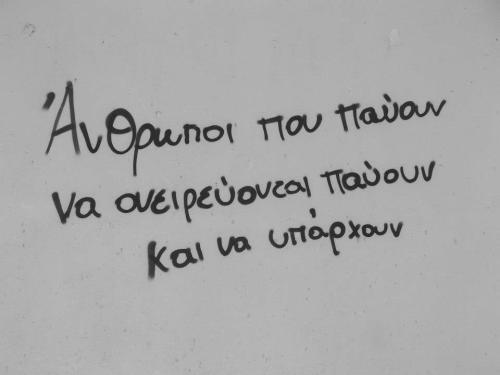 Άνθρωποι που παύουν
να ονειρεύονται παύουν
και να υπάρχουν